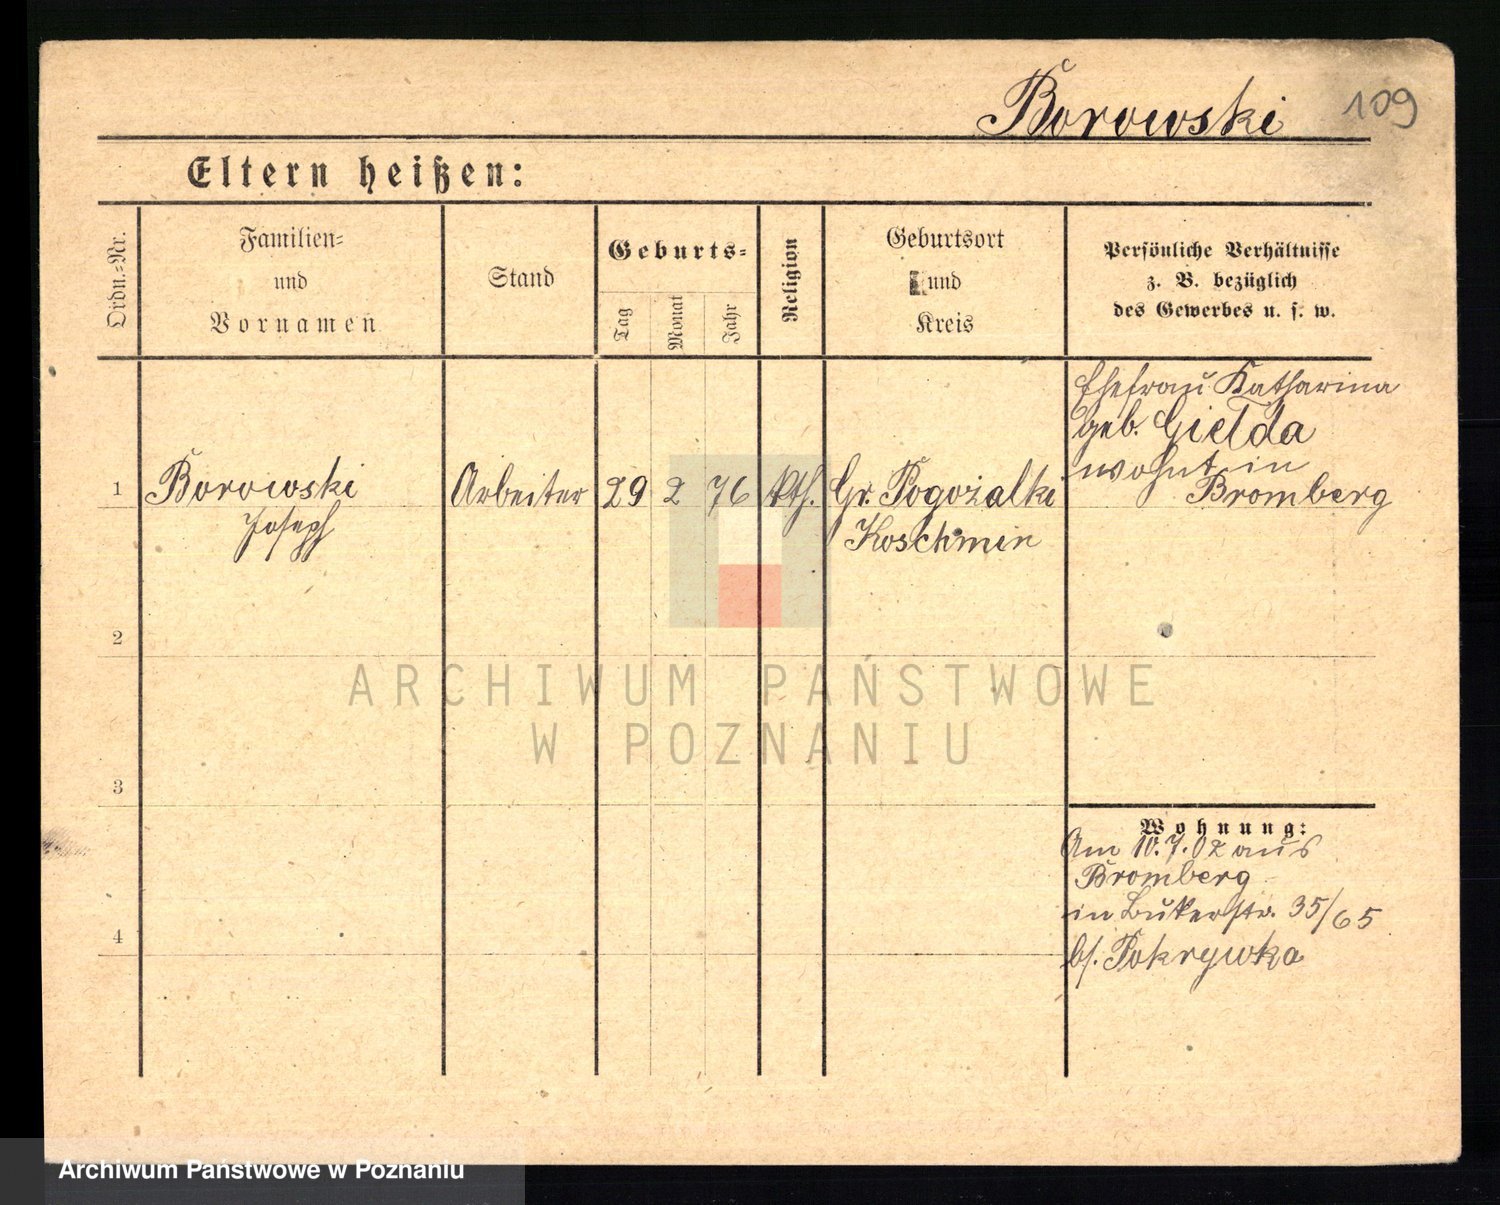 Borowski 109
Eltern heißen:
Ordn.-Nr.
Familien-
und
Vornamen
Stand
Geburts-
Tag
Monat
Jahr
Religion
Geburtsort
und
Kreis
Persönliche Verhältnisse
z. B. bezüglich
des Gewerbes u. s. w.
1
Borowski
Joseph
Arbeiter
29
2
76
kth.
Gr. Pogozalki
Koschmin
Ehefrau Katharina
geb. Gielda
wohnt in
Bromberg
2
3
4
Wohnung:
Am 10.7.02 aus
Bromberg
in Bukerstr. 35/65
bs. Pokrywka
ARCHIWUM PAŃSTWOWE
W POZNANIU
Archiwum Państwowe w Poznaniu